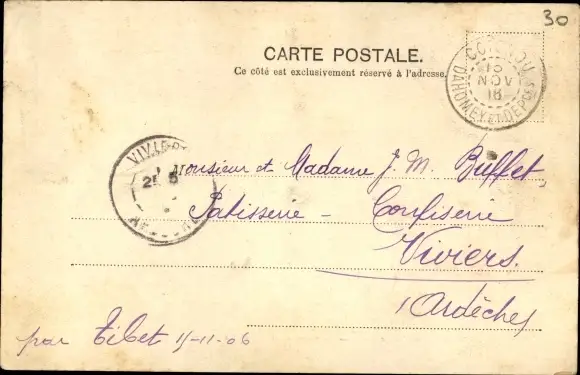 30
CARTE POSTALE.
Ce côté est exclusivement réservé à l'adresse.
COTONOU
16
NOV
DAHOMEY ET DEP
VIVIERS
Monsieur et Madame J. M. Buffet,
Patisserie – Confiserie
Viviers.
(Ardèche)
par Tibet 15-11-06